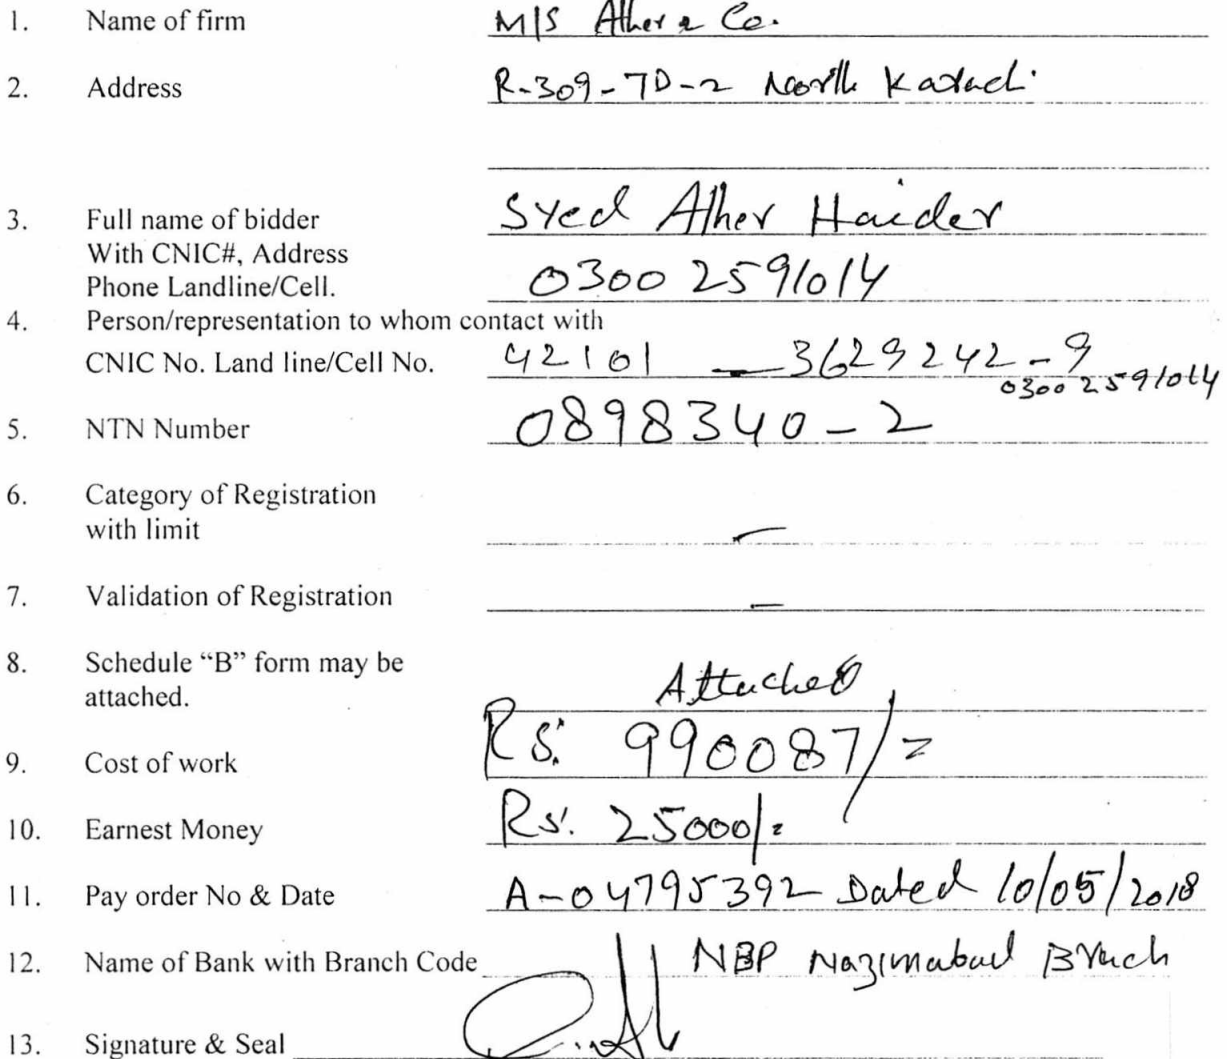 1. Name of firm M/S Ather & Co.
2. Address R-309-7D-2 North Karachi
3. Full name of bidder Syed Ather Haider
With CNIC#, Address
Phone Landline/Cell. 0300 2591014
4. Person/representation to whom contact with
CNIC No. Land line/Cell No. 42101 — 3629242-9
0300 2591014
5. NTN Number 0898340-2
6. Category of Registration
with limit —
7. Validation of Registration —
8. Schedule “B” form may be
attached. Attached
9. Cost of work Rs: 990087/=
10. Earnest Money Rs: 25000/=
11. Pay order No & Date A-04795392 Dated 10/05/2018
12. Name of Bank with Branch Code NBP Nazimabad Branch
13. Signature & Seal